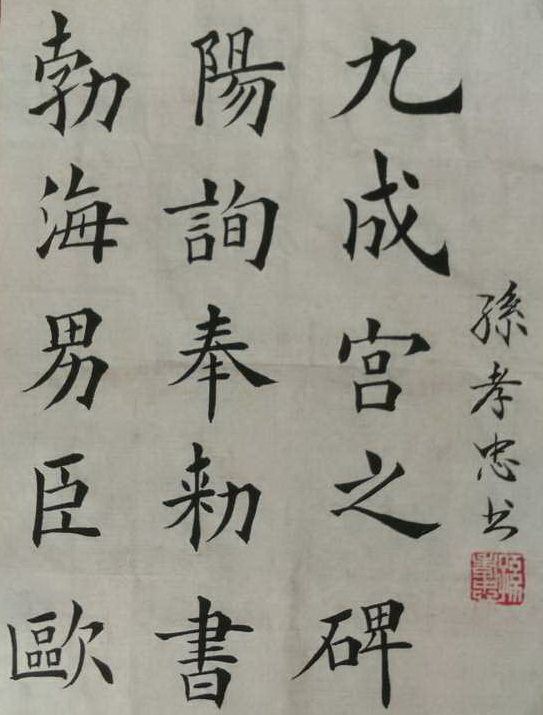 勃海男臣歐
陽詢奉勑書
九成宮之碑
孫孝忠书